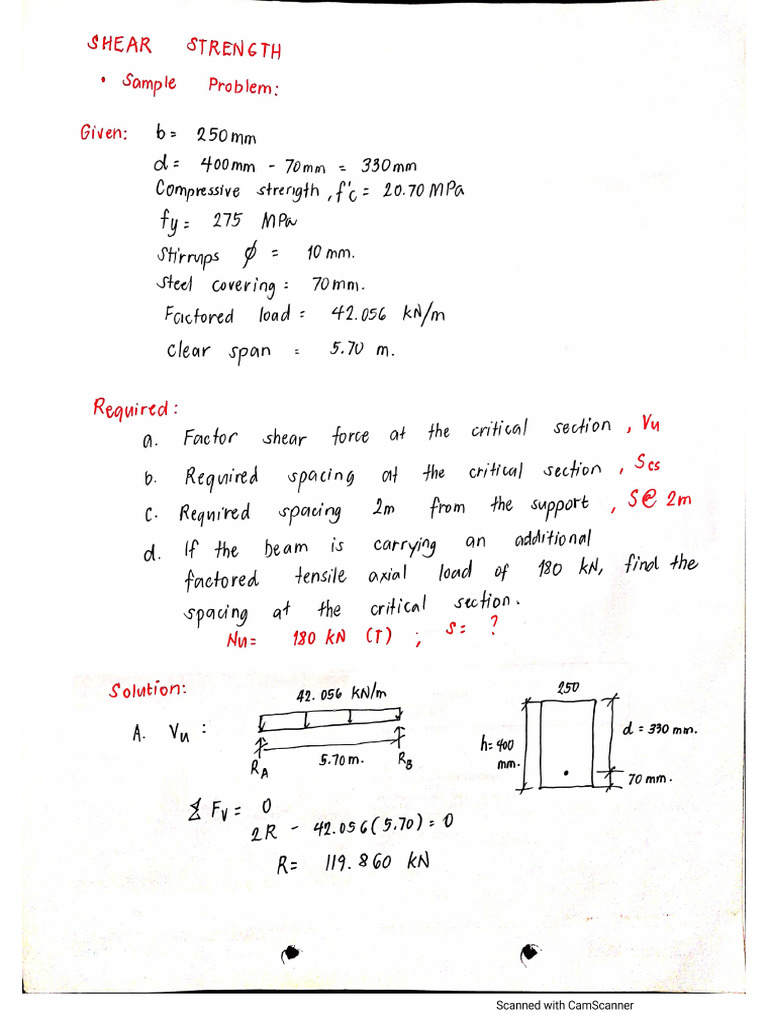 SHEAR STRENGTH
• Sample Problem:
Given: b= 250mm
d= 400mm - 70mm = 330mm
Compressive strength, f'c = 20.70 MPa
fy= 275 MPa
Stirrups ϕ = 10 mm.
Steel covering = 70mm.
Factored load = 42.056 kN/m
Clear span = 5.70 m.
Required:
a. Factor shear force at the critical section, Vu
b. Required spacing at the critical section, Scs
c. Required spacing 2m from the support, S@ 2m
d. If the beam is carrying an additional
factored tensile axial load of 180 kN, find the
spacing at the critical section.
Nu= 180 kN (T) ; s= ?
Solution:
A. Vu :
42.056 kN/m
5.70m.
RA
RB
250
h=400
mm.
d = 330 mm.
70 mm.
∑ Fv = 0
2R - 42.056(5.70) = 0
R= 119.860 KN
Scanned with CamScanner